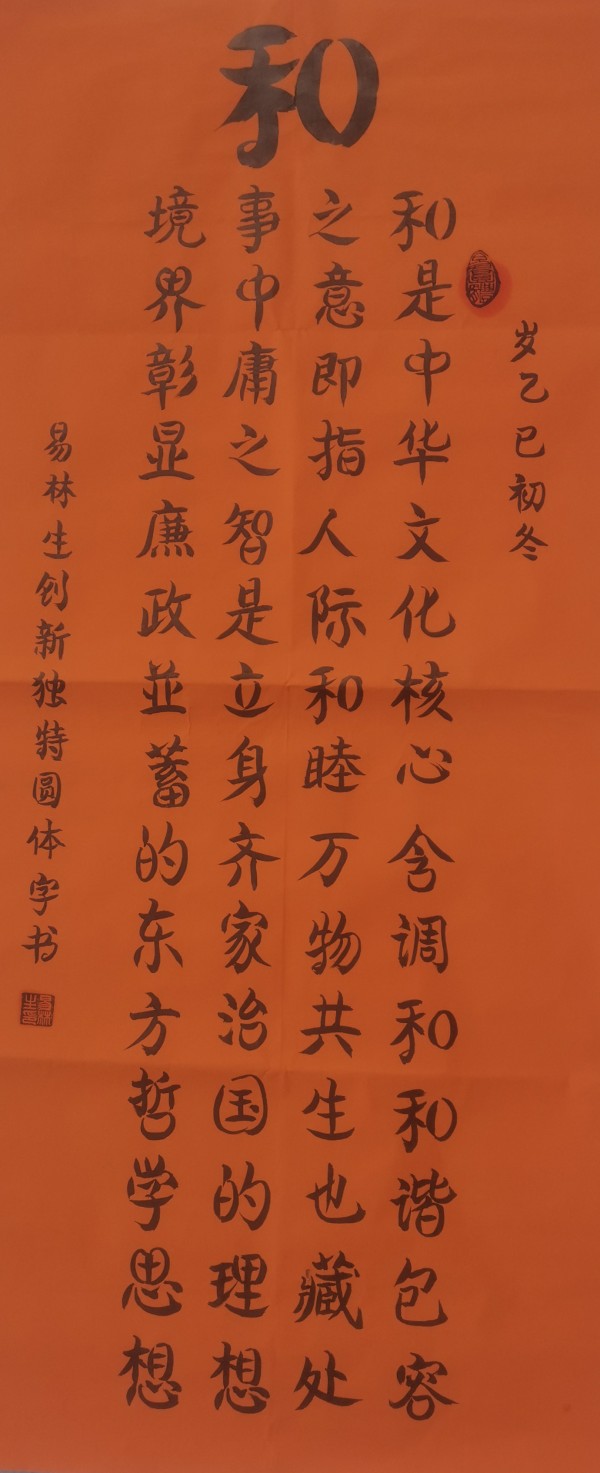 和
岁乙巳初冬
和是中华文化核心含调和和谐包容
之意即指人际和睦万物共生也藏处
事中庸之智是立身齐家治国的理想
境界彰显廉政並蓄的东方哲学思想
易林生创新独特圆体字书